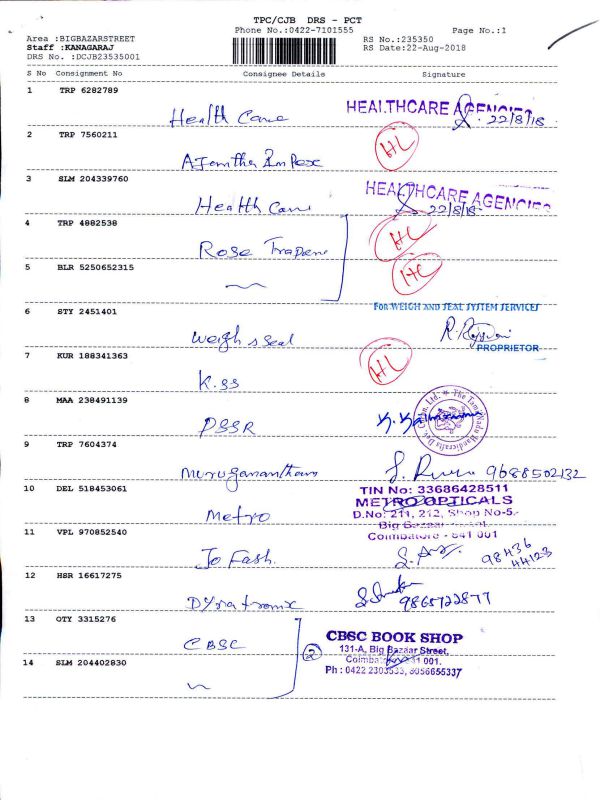 TPC/CJB DRS - PCT
Phone No.:0422-7101555 Page No.:1
Area :BIGBAZARSTREET RS No.:235350
Staff :KANAGARAJ RS Date:22-Aug-2018
DRS No. :DCJB23535001
S No Consignment No Consignee Details Signature
1 TRP 6282789
Health Care HEALTHCARE AGENCIES 22/8/18
2 TRP 7560211
Ajantha Impex HL
3 SLM 204339760
Health Care HEALTHCARE AGENCIES 22/8/18
4 TRP 4882538
Rose HL
5 BLR 5250652315
HL
6 STY 2451401 FOR WEIGH AND SEAL SYSTEM SERVICES
Weigh & Seal PROPRIETOR
7 KUR 188341363
K.SS HL
8 MAA 238491139
PSSR The Tamil Nadu Handicrafts Dev. Corpn. Ltd.
9 TRP 7604374
Murugananthan 9688502132
10 DEL 518453061 TIN No: 33686428511
Metro METRO OPTICALS
D.No: 211, 212, Shop No-5.
Big Bazaar
Coimbatore - 641 001
11 VPL 970852540
Jo Fash. 98436 44123
12 HSR 16617275
9865722877
13 OTY 3315276
CBSC 2 CBSC BOOK SHOP
131-A, Big Bazaar Street,
14 SLM 204402830 Coimbatore 641 001.
Ph : 0422 2303533, 8056655337